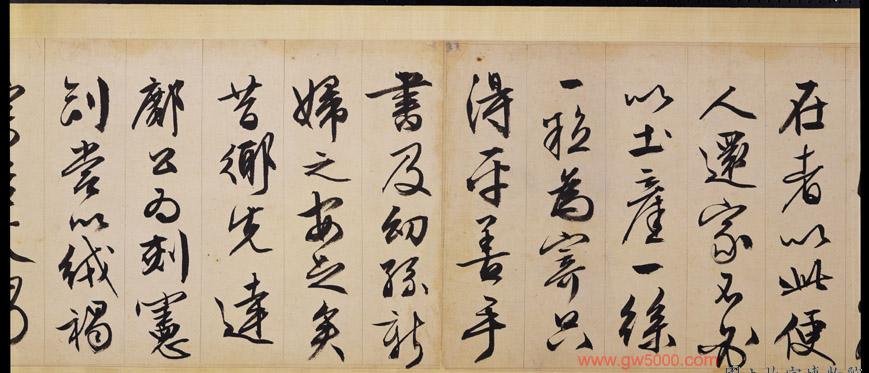 在者以此便
人還家不必
以土產一絲
一粒為寄只
得平善手
書及幼孫新
婦之安足矣
昔鄉先達
鄺公為憲
副嘗以絨褐
www.gw5000.com